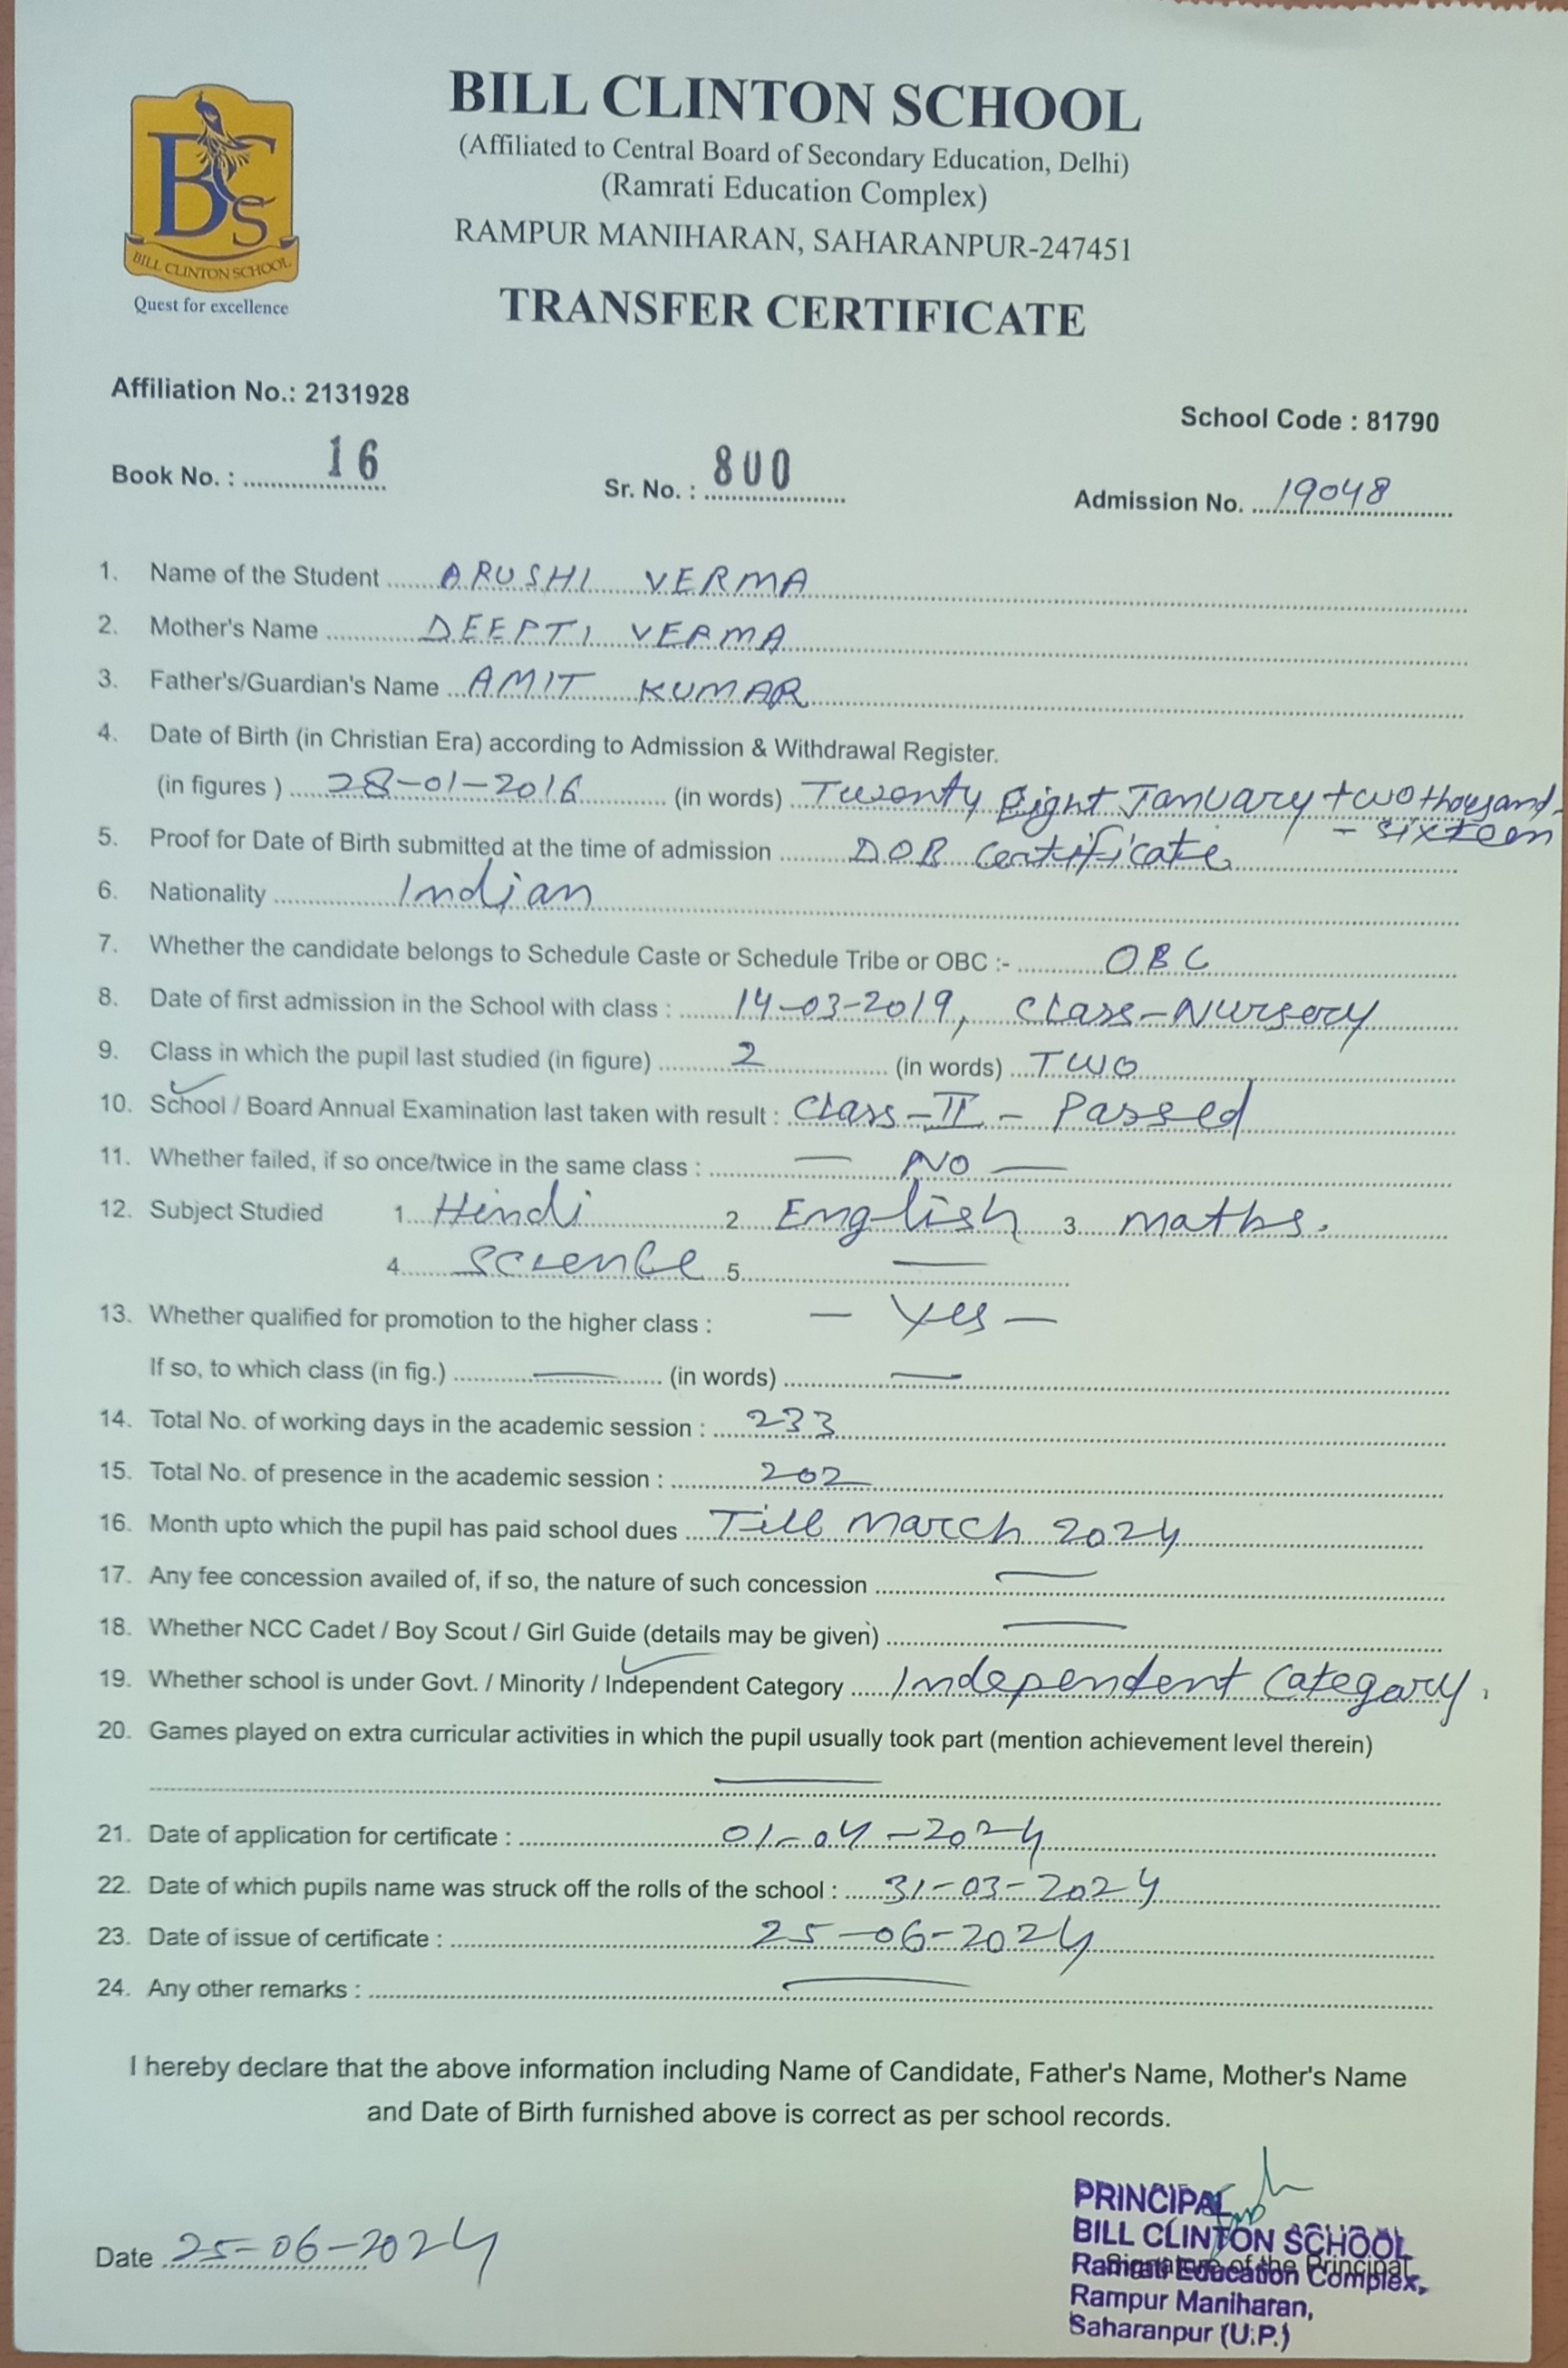 BCS
BILL CLINTON SCHOOL
Quest for excellence
BILL CLINTON SCHOOL
(Affiliated to Central Board of Secondary Education, Delhi)
(Ramrati Education Complex)
RAMPUR MANIHARAN, SAHARANPUR-247451
TRANSFER CERTIFICATE
Affiliation No.: 2131928
School Code : 81790
Book No. : 16 Sr. No. : 800 Admission No. 19048
1. Name of the Student ARUSHI VERMA
2. Mother's Name DEEPTI VERMA
3. Father's/Guardian's Name AMIT KUMAR
4. Date of Birth (in Christian Era) according to Admission & Withdrawal Register.
(in figures ) 28-01-2016 (in words) Twenty Eight January two thousand
- sixteen
5. Proof for Date of Birth submitted at the time of admission DOB Certificate
6. Nationality Indian
7. Whether the candidate belongs to Schedule Caste or Schedule Tribe or OBC :- OBC
8. Date of first admission in the School with class : 14-03-2019, Class-Nursery
9. Class in which the pupil last studied (in figure) 2 (in words) TWO
10. School / Board Annual Examination last taken with result : Class-II - Passed
11. Whether failed, if so once/twice in the same class : — NO —
12. Subject Studied 1. Hindi 2. English 3. maths.
4. Science 5. —
13. Whether qualified for promotion to the higher class : - Yes -
If so, to which class (in fig.) — (in words) —
14. Total No. of working days in the academic session : 233
15. Total No. of presence in the academic session : 202
16. Month upto which the pupil has paid school dues Till March 2024
17. Any fee concession availed of, if so, the nature of such concession —
18. Whether NCC Cadet / Boy Scout / Girl Guide (details may be given) —
19. Whether school is under Govt. / Minority / Independent Category Independent Category.
20. Games played on extra curricular activities in which the pupil usually took part (mention achievement level therein)
—
21. Date of application for certificate : 01-04-2024
22. Date of which pupils name was struck off the rolls of the school : 31-03-2024
23. Date of issue of certificate : 25-06-2024
24. Any other remarks : —
I hereby declare that the above information including Name of Candidate, Father's Name, Mother's Name
and Date of Birth furnished above is correct as per school records.
Date 25-06-2024
PRINCIPAL
BILL CLINTON SCHOOL
Signature of the Principal
Ramrati Education Complex,
Rampur Maniharan,
Saharanpur (U.P.)